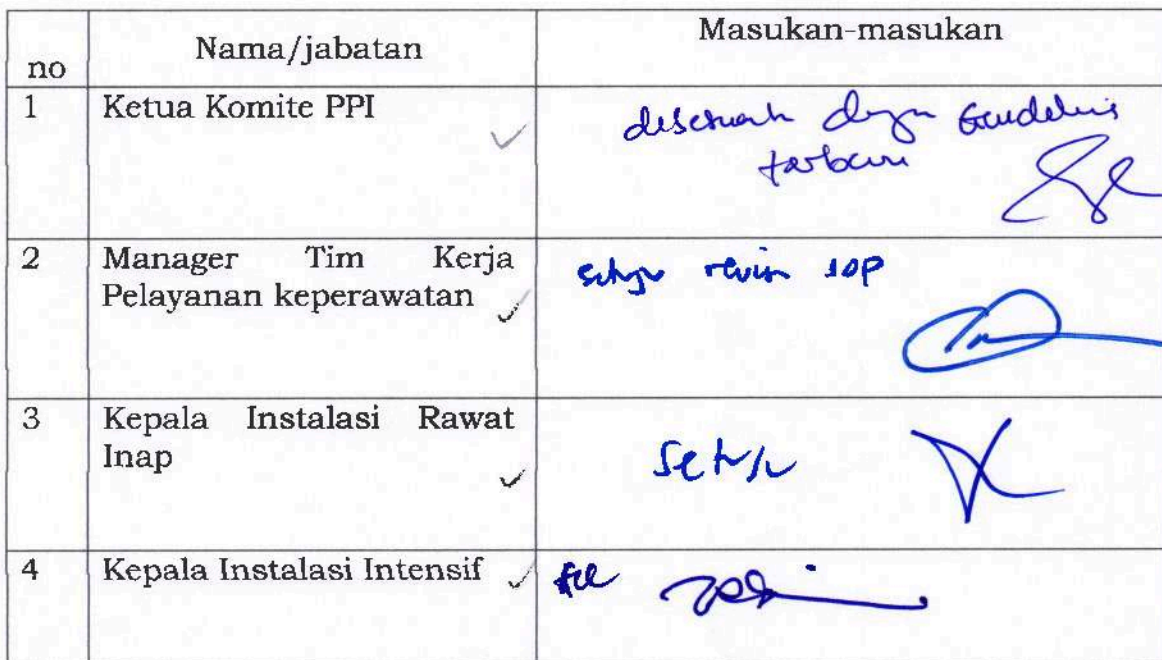 no Nama/jabatan Masukan-masukan
1 Ketua Komite PPI
terbaru
2 Manager Tim Kerja
Pelayanan keperawatan
revisi SOP
3 Kepala Instalasi Rawat
Inap
Setuju
4 Kepala Instalasi Intensif